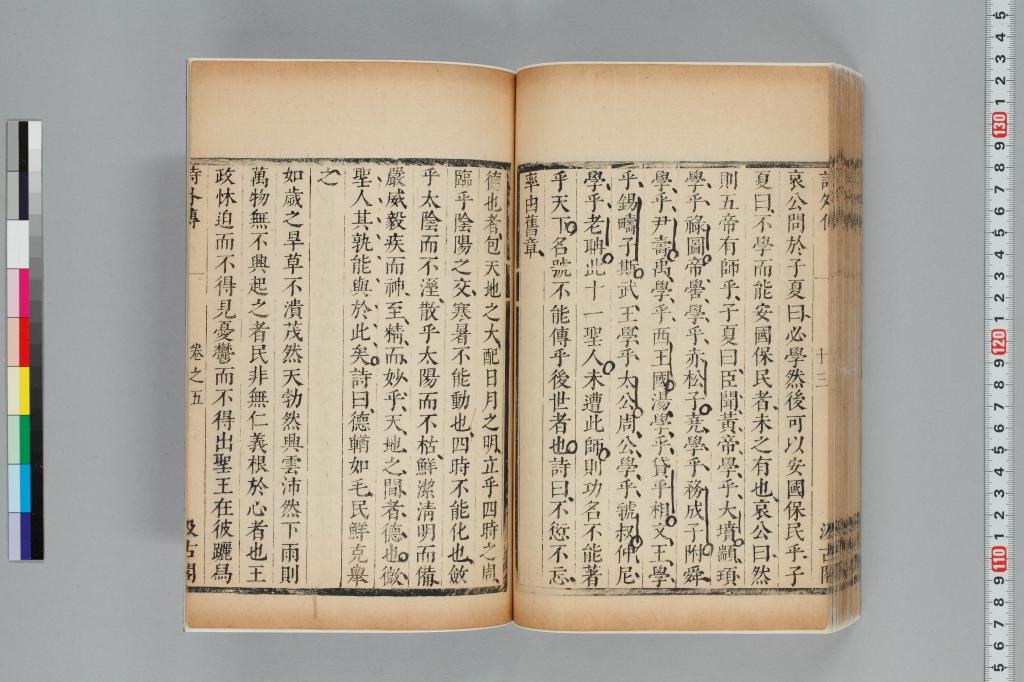 詩外傳
十三
汲古閣
哀公問於子夏曰必學然後可以安國保民乎子
夏曰不學而能安國保民者未之有也哀公曰然
則五帝有師乎子夏曰臣聞黃帝學乎大墳顓頊
學乎祿圖帝嚳學乎赤松子堯學乎務成子附舜
學乎尹壽禹學乎西王國湯學乎貸乎相文王學
乎錫疇子斯武王學乎太公周公學乎虢叔仲尼
學乎老聃此十一聖人未遭此師則功名不能著
乎天下名號不能傳乎後世者也詩曰不愆不忘
率由舊章
德也者包天地之大配日月之明立乎四時之周
臨乎陰陽之交寒暑不能動也四時不能化也斂
乎太陰而不溼散乎太陽而不枯鮮潔清明而備
嚴威毅疾而神至精而妙乎天地之間者德也微
聖人其孰能與於此矣詩曰德輶如毛民鮮克舉
之
如歲之旱草不潰茂然天勃然興雲沛然下雨則
萬物無不興起之者民非無仁義根於心者也王
政怵迫而不得見憂鬱而不得出聖王在彼躧舄
詩外傳
卷之五
汲古閣
130
120
110